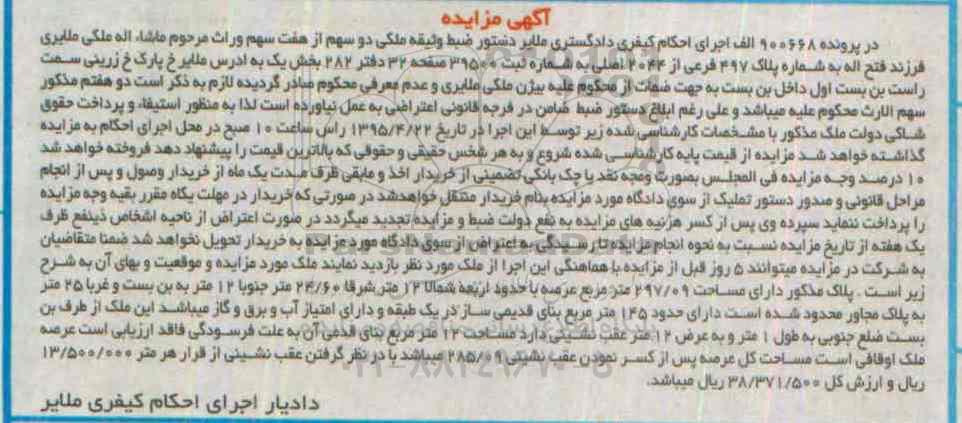 آگهی مزایده
در پرونده ۹۰۰۶۶۸ الف اجرای احکام کیفری دادگستری ملایر دستور ضبط وثیقه ملکی دو سهم از هفت سهم وراث مرحوم ماشاء اله ملکی ملایری
فرزند فتح اله به شماره پلاک ۴۹۷ فرعی از ۲۰۴۴ اصلی به شماره ثبت ۳۹۵۰۰ صفحه ۳۲ دفتر ۲۸۲ بخش یک به ادرس ملایر خ پارک خ زرینی سمت
راست بن بست اول داخل بن بست به جهت ضمات از محکوم علیه بیژن ملکی ملایری و عدم معرفی محکوم صادر گردیده لازم به ذکر است دو هفتم مذکور
سهم الارث محکوم علیه میباشد و علی رغم ابلاغ دستور ضبط ضامن در فرجه قانونی اعتراضی به عمل نیاورده است لذا به منظور استیفاء و پرداخت حقوق
شاکی دولت ملک مذکور با مشخصات کارشناسی شده زیر توسط این اجرا در تاریخ ۱۳۹۵/۴/۲۲ راس ساعت ۱۰ صبح در محل اجرای احکام به مزایده
گذاشته خواهد شد مزایده از قیمت پایه کارشناسی شده شروع و به هر شخص حقیقی و حقوقی که بالاترین قیمت را پیشنهاد دهد فروخته خواهد شد
۱۰ درصد وجه مزایده فی المجلس بصورت وجه نقد یا چک بانکی تضمینی از خریدار اخذ و مابقی ظرف مدت یک ماه از خریدار وصول و پس از انجام
مراحل قانونی و صدور دستور تملیک از سوی دادگاه مورد مزایده بنام خریدار منتقل خواهدشد در صورتی که خریدار در مهلت یکاه مقرر بقیه وجه مزایده
را پرداخت ننماید سپرده وی پس از کسر هزنیه های مزایده به نفع دولت ضبط و مزایده تجدید میگردد در صورت اعتراض از ناحیه اشخاص ذینفع ظرف
یک هفته از تاریخ مزایده نسبت به نحوه انجام مزایده تا رسیدگی به اعتراض از سوی دادگاه مورد مزایده به خریدار تحویل نخواهد شد ضمنا متقاضیان
به شرکت در مزایده میتوانند ۵ روز قبل از مزایده با هماهنگی این اجرا از ملک مورد نظر بازدید نمایند ملک مورد مزایده و موقعیت و بهای آن به شرح
زیر است . پلاک مذکور دارای مساحت ۲۹۷/۰۹ متر مربع عرصه با حدود اربعه شمالا ۱۲ متر شرقا ۲۴/۶۰ متر جنوبا ۱۲ متر به بن بست و غربا ۲۵ متر
به پلاک مجاور محدود شده است دارای حدود ۱۴۵ متر مربع بنای قدیمی ساز در یک طبقه و دارای امتیاز آب و برق و گاز میباشد این ملک از طرف بن
بست ضلع جنوبی به طول ۱ متر و به عرض ۱۲ متر عقب نشینی دارد مساحت ۱۲ متر مربع بنای قدمی آن به علت فرسودگی فاقد ارزیابی است عرصه
ملک اوقافی است مساحت کل عرصه پس از کسر نمودن عقب نشینی ۲۸۵/۰۹ میباشد با در نظر گرفتن عقب نشینی از قرار هر متر ۱۳/۵۰۰/۰۰۰
ریال و ارزش کل ۳۸/۳۷۱/۵۰۰ ریال میباشد.
دادیار اجرای احکام کیفری ملایر